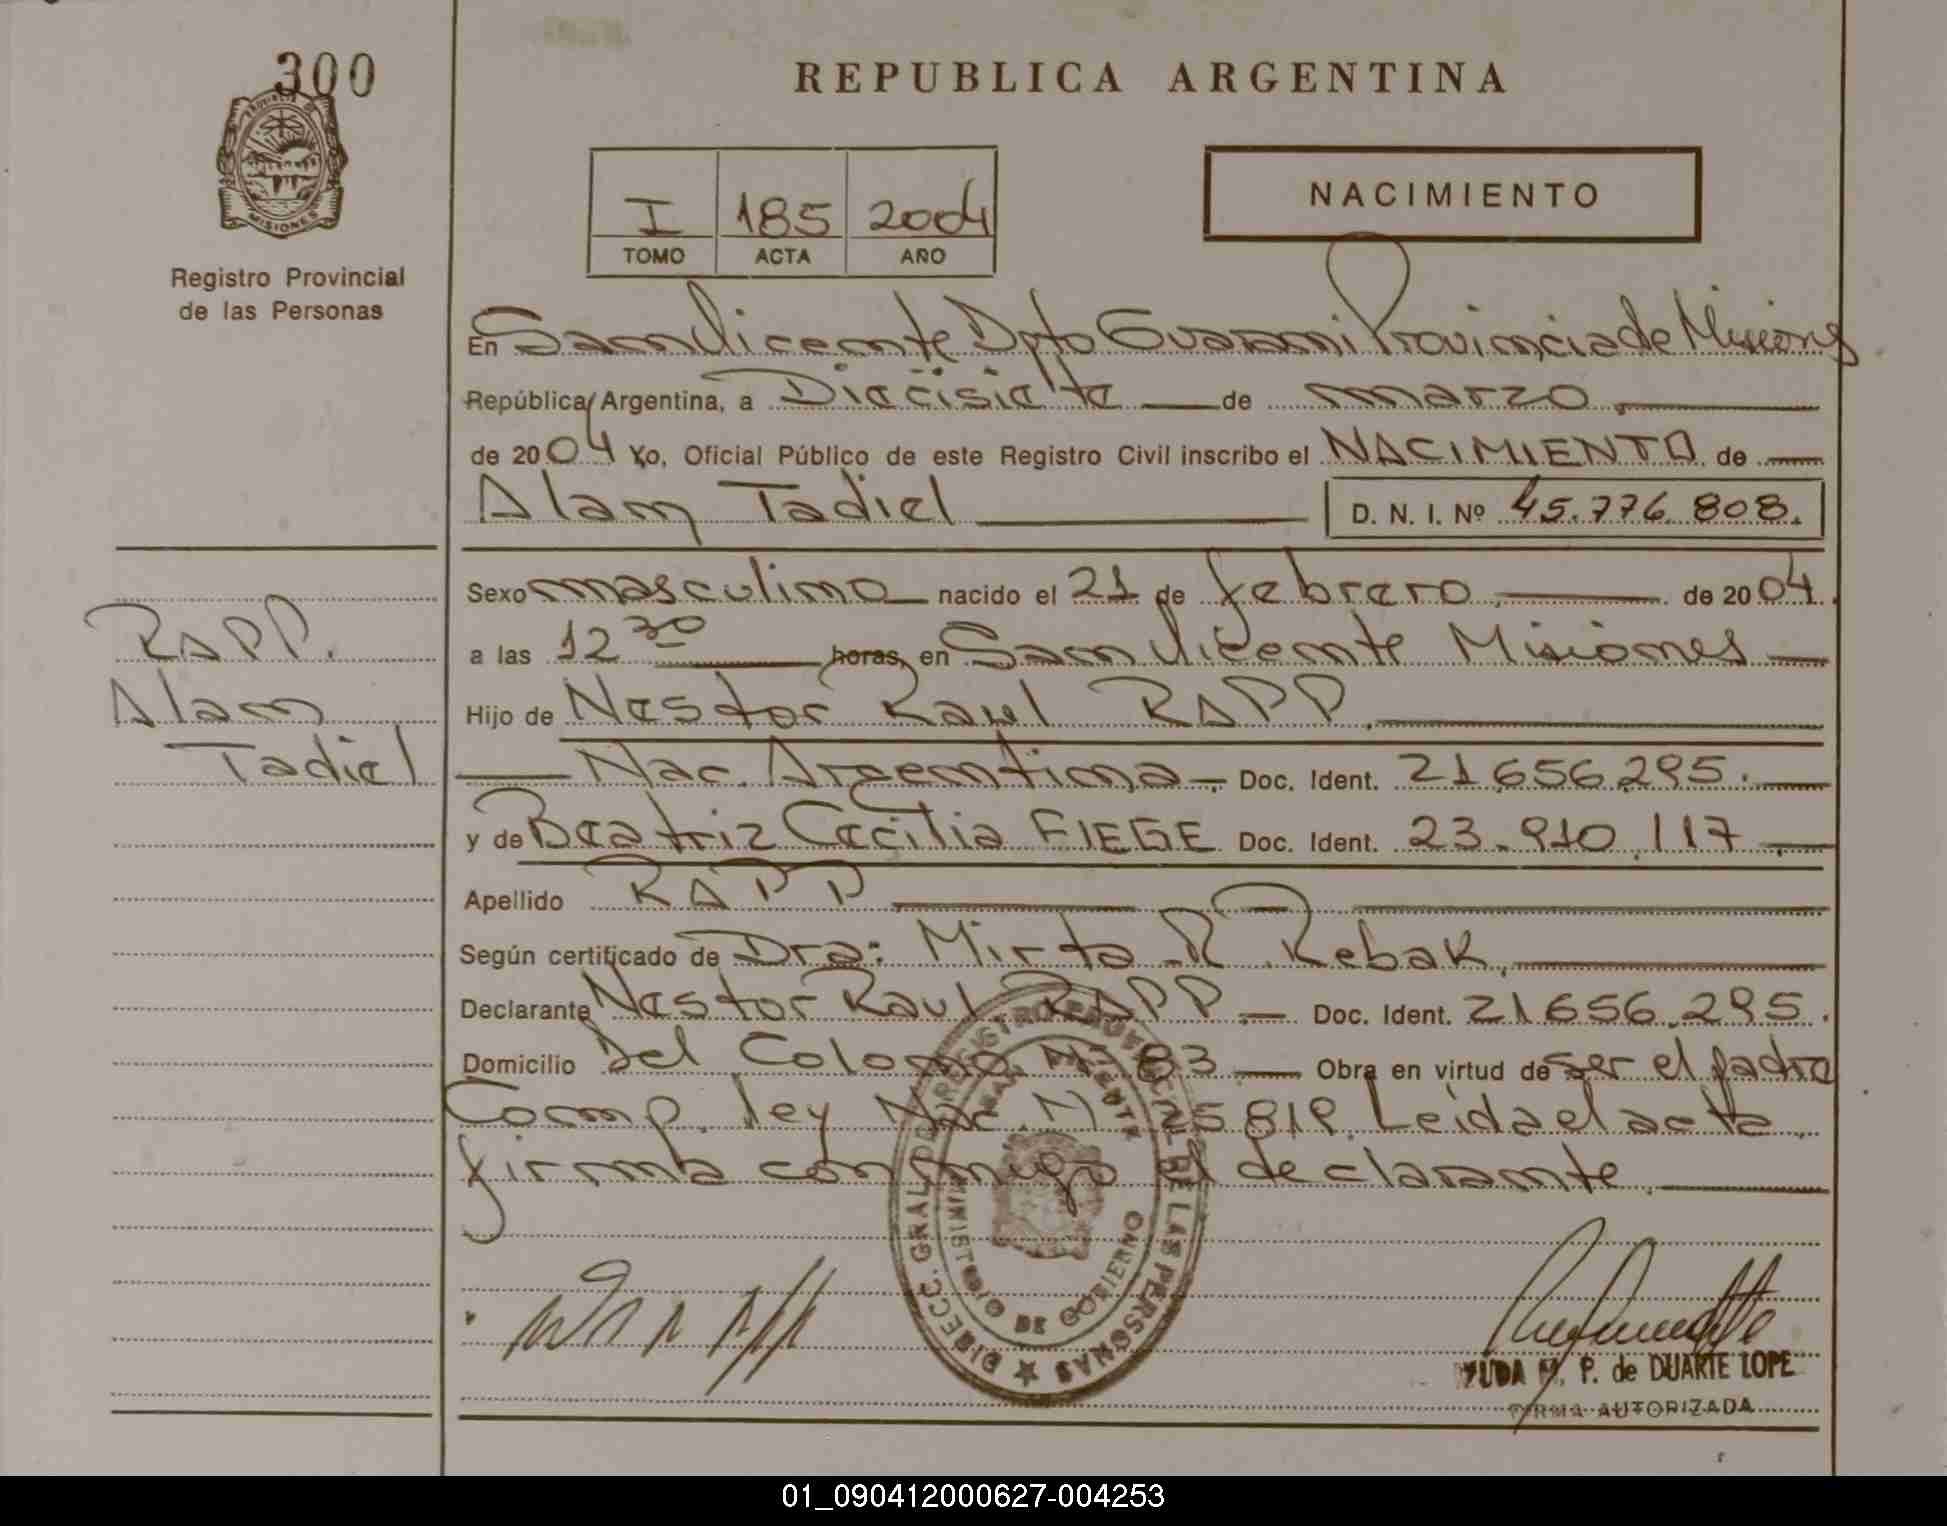 300
REPUBLICA ARGENTINA
MISIONES
Registro Provincial
de las Personas
I 185 2004
TOMO ACTA AÑO
NACIMIENTO
En San Vicente Dpto Guarani Provincia de Misiones
República Argentina, a Diecisiete de marzo
de 2004 Yo, Oficial Público de este Registro Civil inscribo el NACIMIENTO de
Alan Tadiel
D. N. I. Nº 45.776.808.
Sexo masculino nacido el 21 de febrero de 2004
a las 12 30 horas, en San Vicente Misiones
Hijo de Nestor Raul RAPP.
Nac. Argentina Doc. Ident. 21.656.295.
y de Beatriz Cecilia FIEGE Doc. Ident. 23.910.117
Apellido RAPP
Según certificado de Dra: Mirta R. Rebak
Declarante Nestor Raul RAPP Doc. Ident. 21656.295.
Domicilio Del Colono Nº 83 Obra en virtud de ser el padre
Comp. ley Nac. Nº 25819. Leida el acta
firma conmigo el declarante
RAPP.
Alan
Tadiel
DIRECC. GRAL. DEL REGISTRO PROVINCIAL DE LAS PERSONAS
MINISTERIO DE GOBIERNO
M. P. de DUARTE LOPE
FIRMA AUTORIZADA
01_090412000627-004253